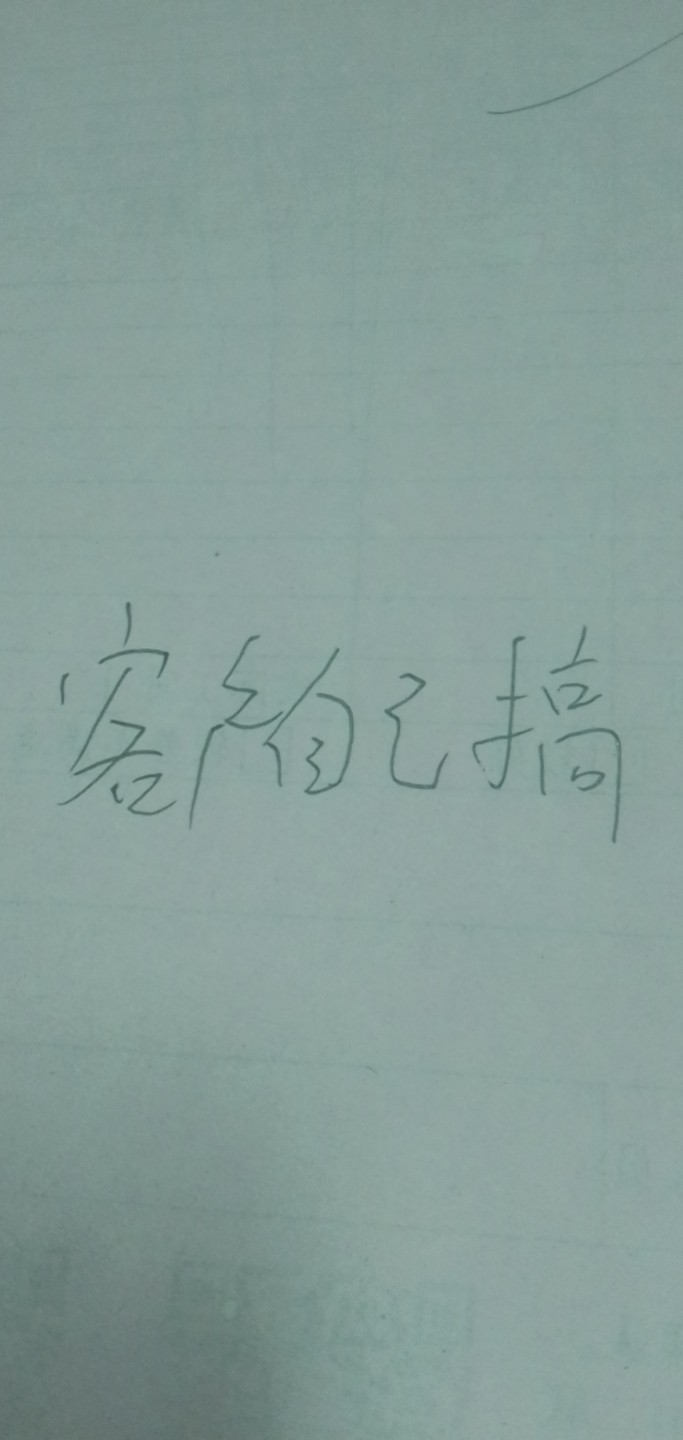 客户自己搞